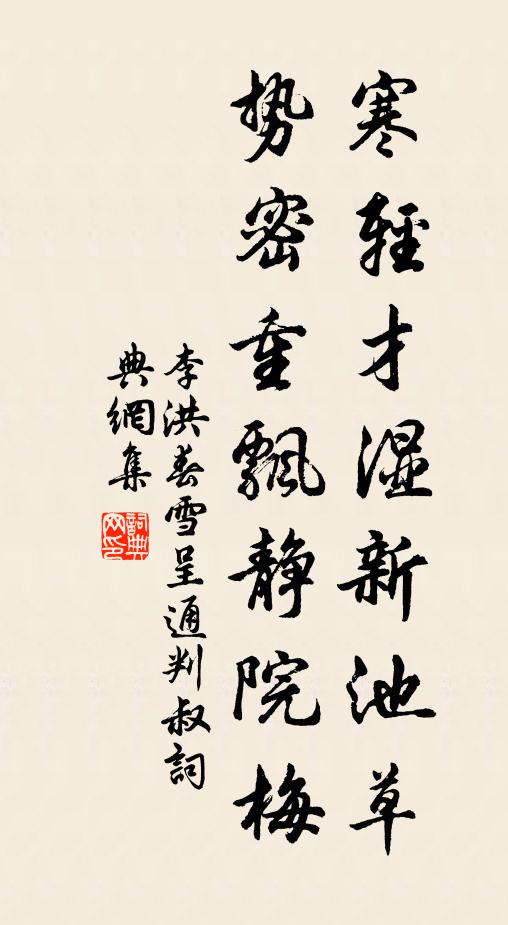 寒輕才湿新池草
势密重飘静院梅
李洪春雪呈通判叔詞
典網集
詞典
网印